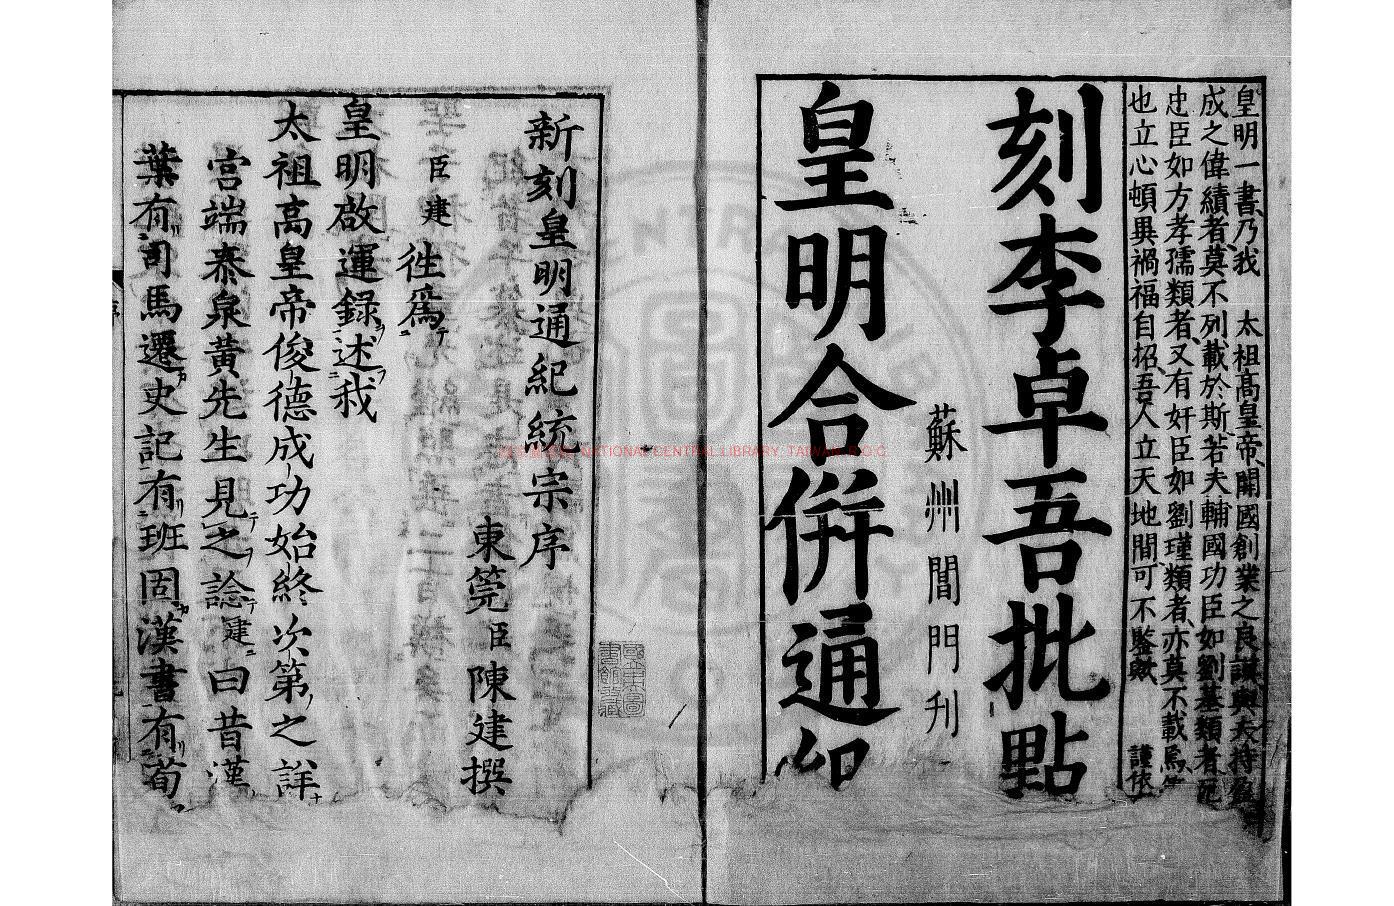 皇明一書乃我 太祖高皇帝開國創業之良謨與夫持盈
成之偉績者莫不列載於斯若夫輔國功臣如劉基類者
忠臣如方孝孺類者又有奸臣如劉瑾類者亦莫不載焉
也立心頓異禍福自招吾人立天地間可不鑒歟 謹依
刻李卓吾批點
蘇州閶門刊
皇明合併通
新刻皇明通紀統宗序
東莞臣陳建撰
臣建徃爲
皇明啟運録述我
太祖高皇帝俊德成功始終次第之詳
宮端泰泉黃先生見之諗建曰昔漢
葉有司馬遷史記有班固漢書有荀
NATIONAL CENTRAL LIBRARY, TAIWAN, R.O.C